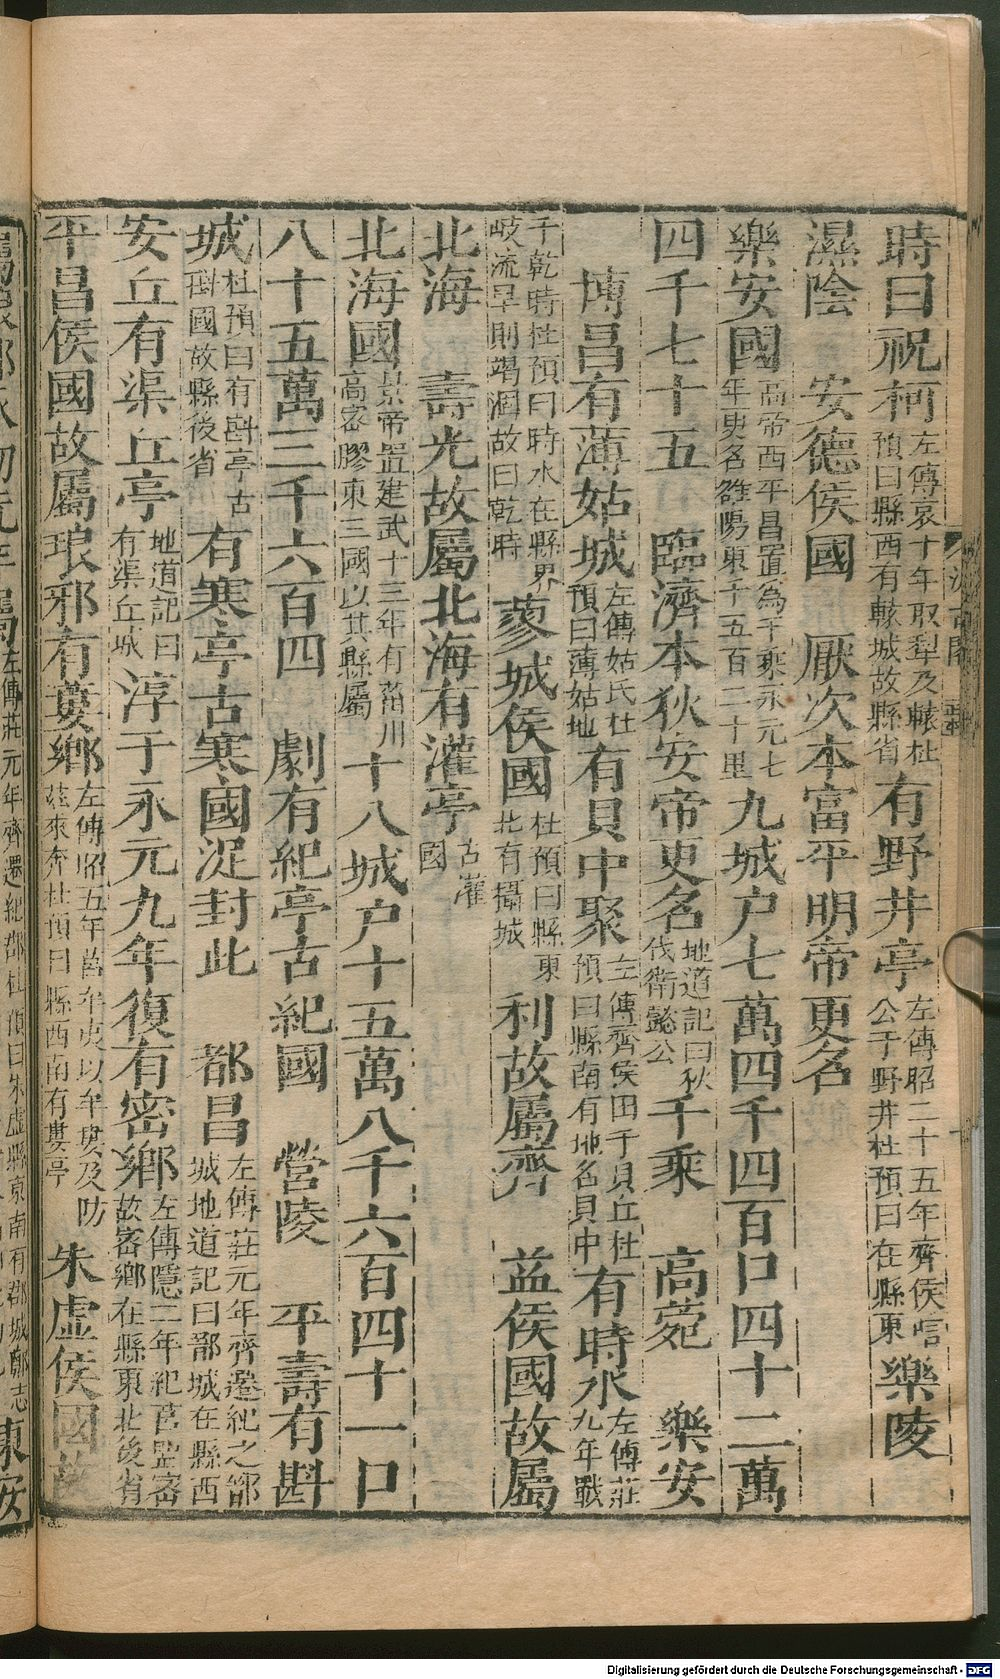 時曰祝柯左傳哀十年取犁及轅杜預曰縣西有轅城故縣省有野井亭左傳昭二十五年齊侯唁公于野井杜預曰在縣東樂陵
濕陰　安德侯國　厭次本富平明帝更名
樂安國高帝西平昌置為千乘永元七年更名雒陽東千五百二十里九城户七萬四千四百口四十二萬
四千七十五　臨濟本狄安帝更名地道記曰狄伐衛懿公千乘　高菀　樂安
博昌有薄姑城左傳姑氏杜預曰薄姑地有貝中聚左傳齊侯田于貝丘杜預曰縣南有地名貝中有時水左傳莊九年戰
于乾時杜預曰時水在縣界岐流旱則竭涸故曰乾時蓼城侯國杜預曰縣東北有攝城利故屬齊　益侯國故屬
北海　壽光故屬北海有灌亭古灌國
北海國景帝置建武十三年有菑川高密膠東三國以其縣屬十八城户十五萬八千六百四十一口
八十五萬三千六百四　劇有紀亭古紀國　營陵　平壽有斟
城杜預曰有斟亭古斟國故縣後省有寒亭古寒國浞封此　都昌左傳莊元年齊遷紀之郚城地道記曰郚城在縣西
安丘有渠丘亭地道記曰有渠丘城淳于永元九年復有密鄉左傳隱二年紀莒盟密故密鄉在縣東北後省
平昌侯國故屬琅邪有蔞鄉左傳昭五年莒牟夷以牟婁及防茲來奔杜預曰縣西南有婁亭朱虛侯國故
左傳莊元年齊遷紀郚杜預曰朱虛縣東南有郚城鄭志東安
Digitalisierung gefördert durch die Deutsche Forschungsgemeinschaft - DFG